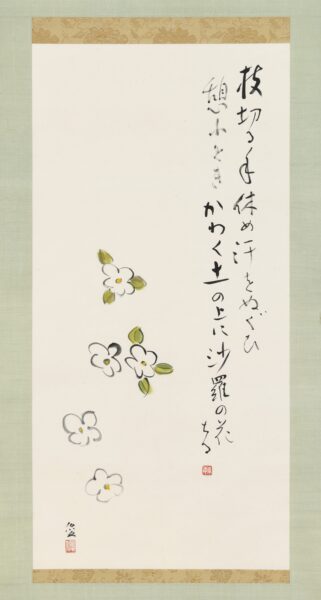 枝切る手休め汗をぬぐひ
憩ふとき かわく土の上に沙羅の花